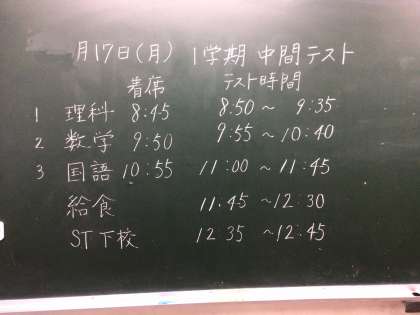 月17日(月) 1学期 中間テスト
着席 テスト時間
1 理科 8:45 8:50〜 9:35
2 数学 9:50 9:55〜10:40
3 国語 10:55 11:00〜11:45
給食 11.45〜12:30
ST下校 12 35 〜12:45